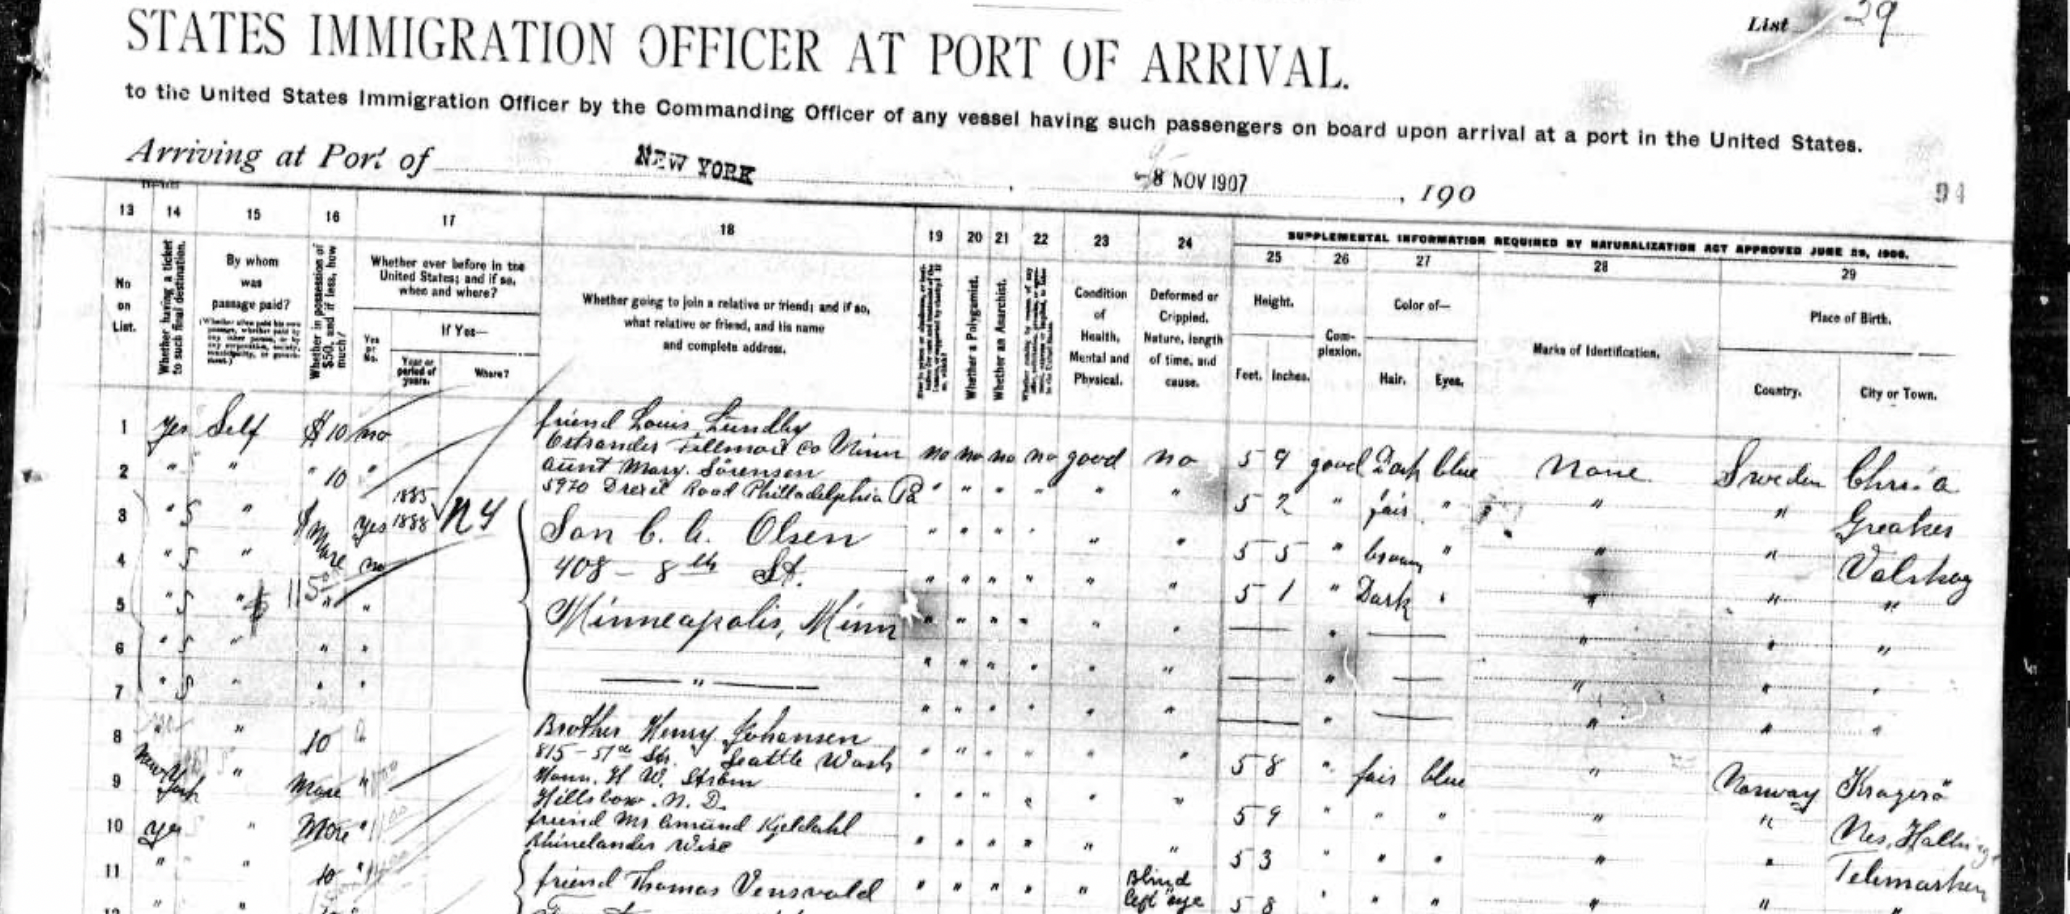 List 29
STATES IMMIGRATION OFFICER AT PORT OF ARRIVAL.
to the United States Immigration Officer by the Commanding Officer of any vessel having such passengers on board upon arrival at a port in the United States.
Arriving at Port of NEW YORK, 8 NOV 1907, 190
94
13 14 15 16 17 18 19 20 21 22 23 24
SUPPLEMENTAL INFORMATION REQUIRED BY NATURALIZATION ACT APPROVED JUNE 29, 1906.
25 26 27 28 29
No on List.
Whether having a ticket to such final destination.
By whom was passage paid?
Whether in possession of $50, and if less, how much?
Whether ever before in the United States; and if so, when and where?
Yes or No.
If Yes—
Year or period of years.
Where?
Whether going to join a relative or friend; and if so, what relative or friend, and his name and complete address.
Whether a Polygamist.
Whether an Anarchist.
Condition of Health, Mental and Physical.
Deformed or Crippled. Nature, length of time, and cause.
Height.
Feet. Inches.
Complexion.
Color of—
Hair. Eyes.
Marks of Identification.
Place of Birth.
Country. City or Town.
1 Yes Self $10 no friend Louis Lundby
Fillmore Co Minn no no no no good no 5 9 good Dark blue None Sweden Chria
2 " " " 10 " aunt Mary Sorensen
5920 Drexel Road Philladelphia Pa " " " " " " 5 2 " fair " " " Greaker
3 " S " $ More Yes 1885 1888 N Y Son C. A. Olsen " " " " " 5 5 " brown " " " Valskog
4 " S " no 408 - 8th St. " " " " " " 5 1 " Dark " " " "
5 " S " 50 " Minneapolis, Minn " " " " " " " " " "
6 " S " " " " " " " " " " " " "
7 " S " " " — " — " " " " " " " " " "
8 " " 10 Brother Henry Johansen
815 - 57th Str. Seattle Wash " " " " " " 5 8 " fair blue " Norway Kragerö
9 New York " More " H. W. Strom
Hillsboro. N. D. " " " " " " 5 9 " " " " " Nes, Halling
10 yes " More " friend Mr Amund Kjeldahl
Rhinelander Wisc " " " " " " 5 3 " " " " " Telemarken
11 " " 10 " friend Thomas " " " " " Blind left eye 5 8 " " " " " "
12